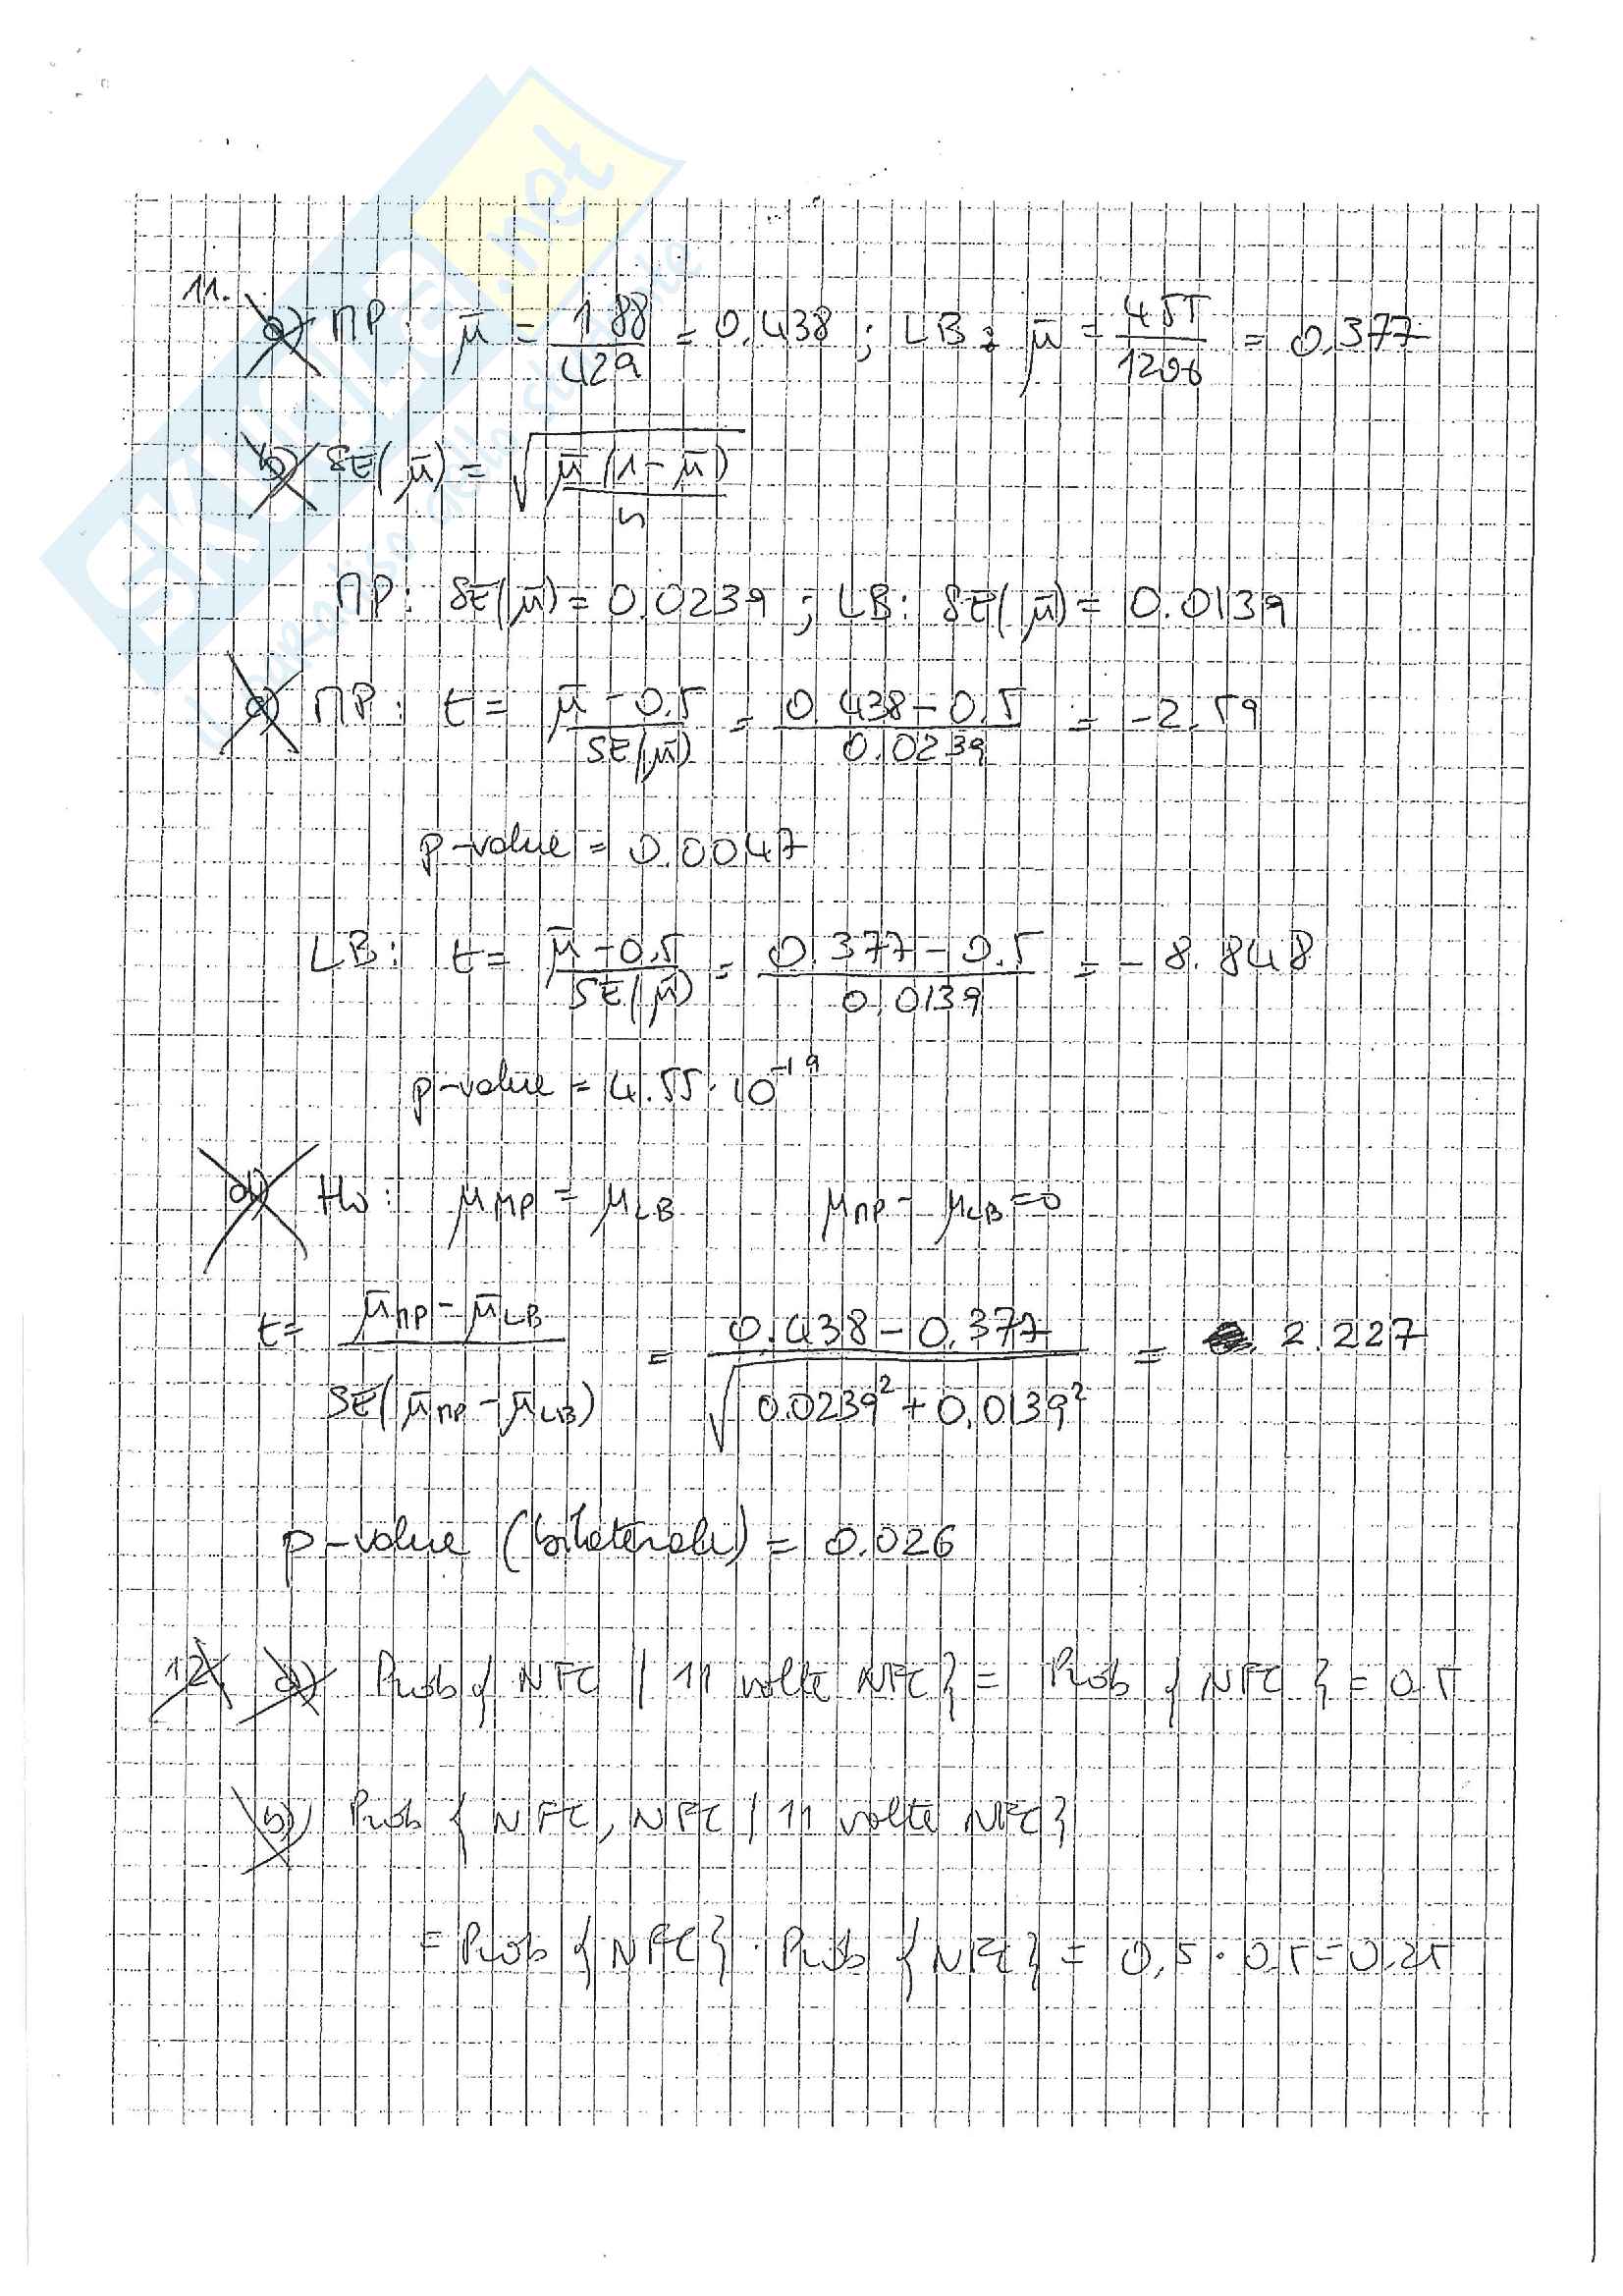 11.
a) MP: μ̄ = 188/429 = 0.438 ; LB: μ̄ = 455/1206 = 0.377
b) SE(μ̄) = √(μ̄(1-μ̄)/n)
MP: SE(μ̄) = 0.0239 ; LB: SE(μ̄) = 0.0139
c) MP: t = (μ̄ - 0.5)/SE(μ̄) = (0.438 - 0.5)/0.0239 = -2.59
p-value = 0.0047
LB: t = (μ̄ - 0.5)/SE(μ̄) = (0.377 - 0.5)/0.0139 = -8.848
p-value = 4.55·10⁻¹⁹
d) H₀: μ_MP = μ_LB μ_MP - μ_LB = 0
t = (μ̄_MP - μ̄_LB)/SE(μ̄_MP - μ̄_LB) = (0.438 - 0.377)/√(0.0239² + 0.0139²) = 2.227
p-value (bilaterale) = 0.026
12. a) Prob{NFC / 11 volte NFC} = Prob{NFC} = 0.5
b) Prob{NFC, NFC / 11 volte NFC}
= Prob{NFC} · Prob{NFC} = 0,5 · 0.5 = 0.25
SKUOLA.net